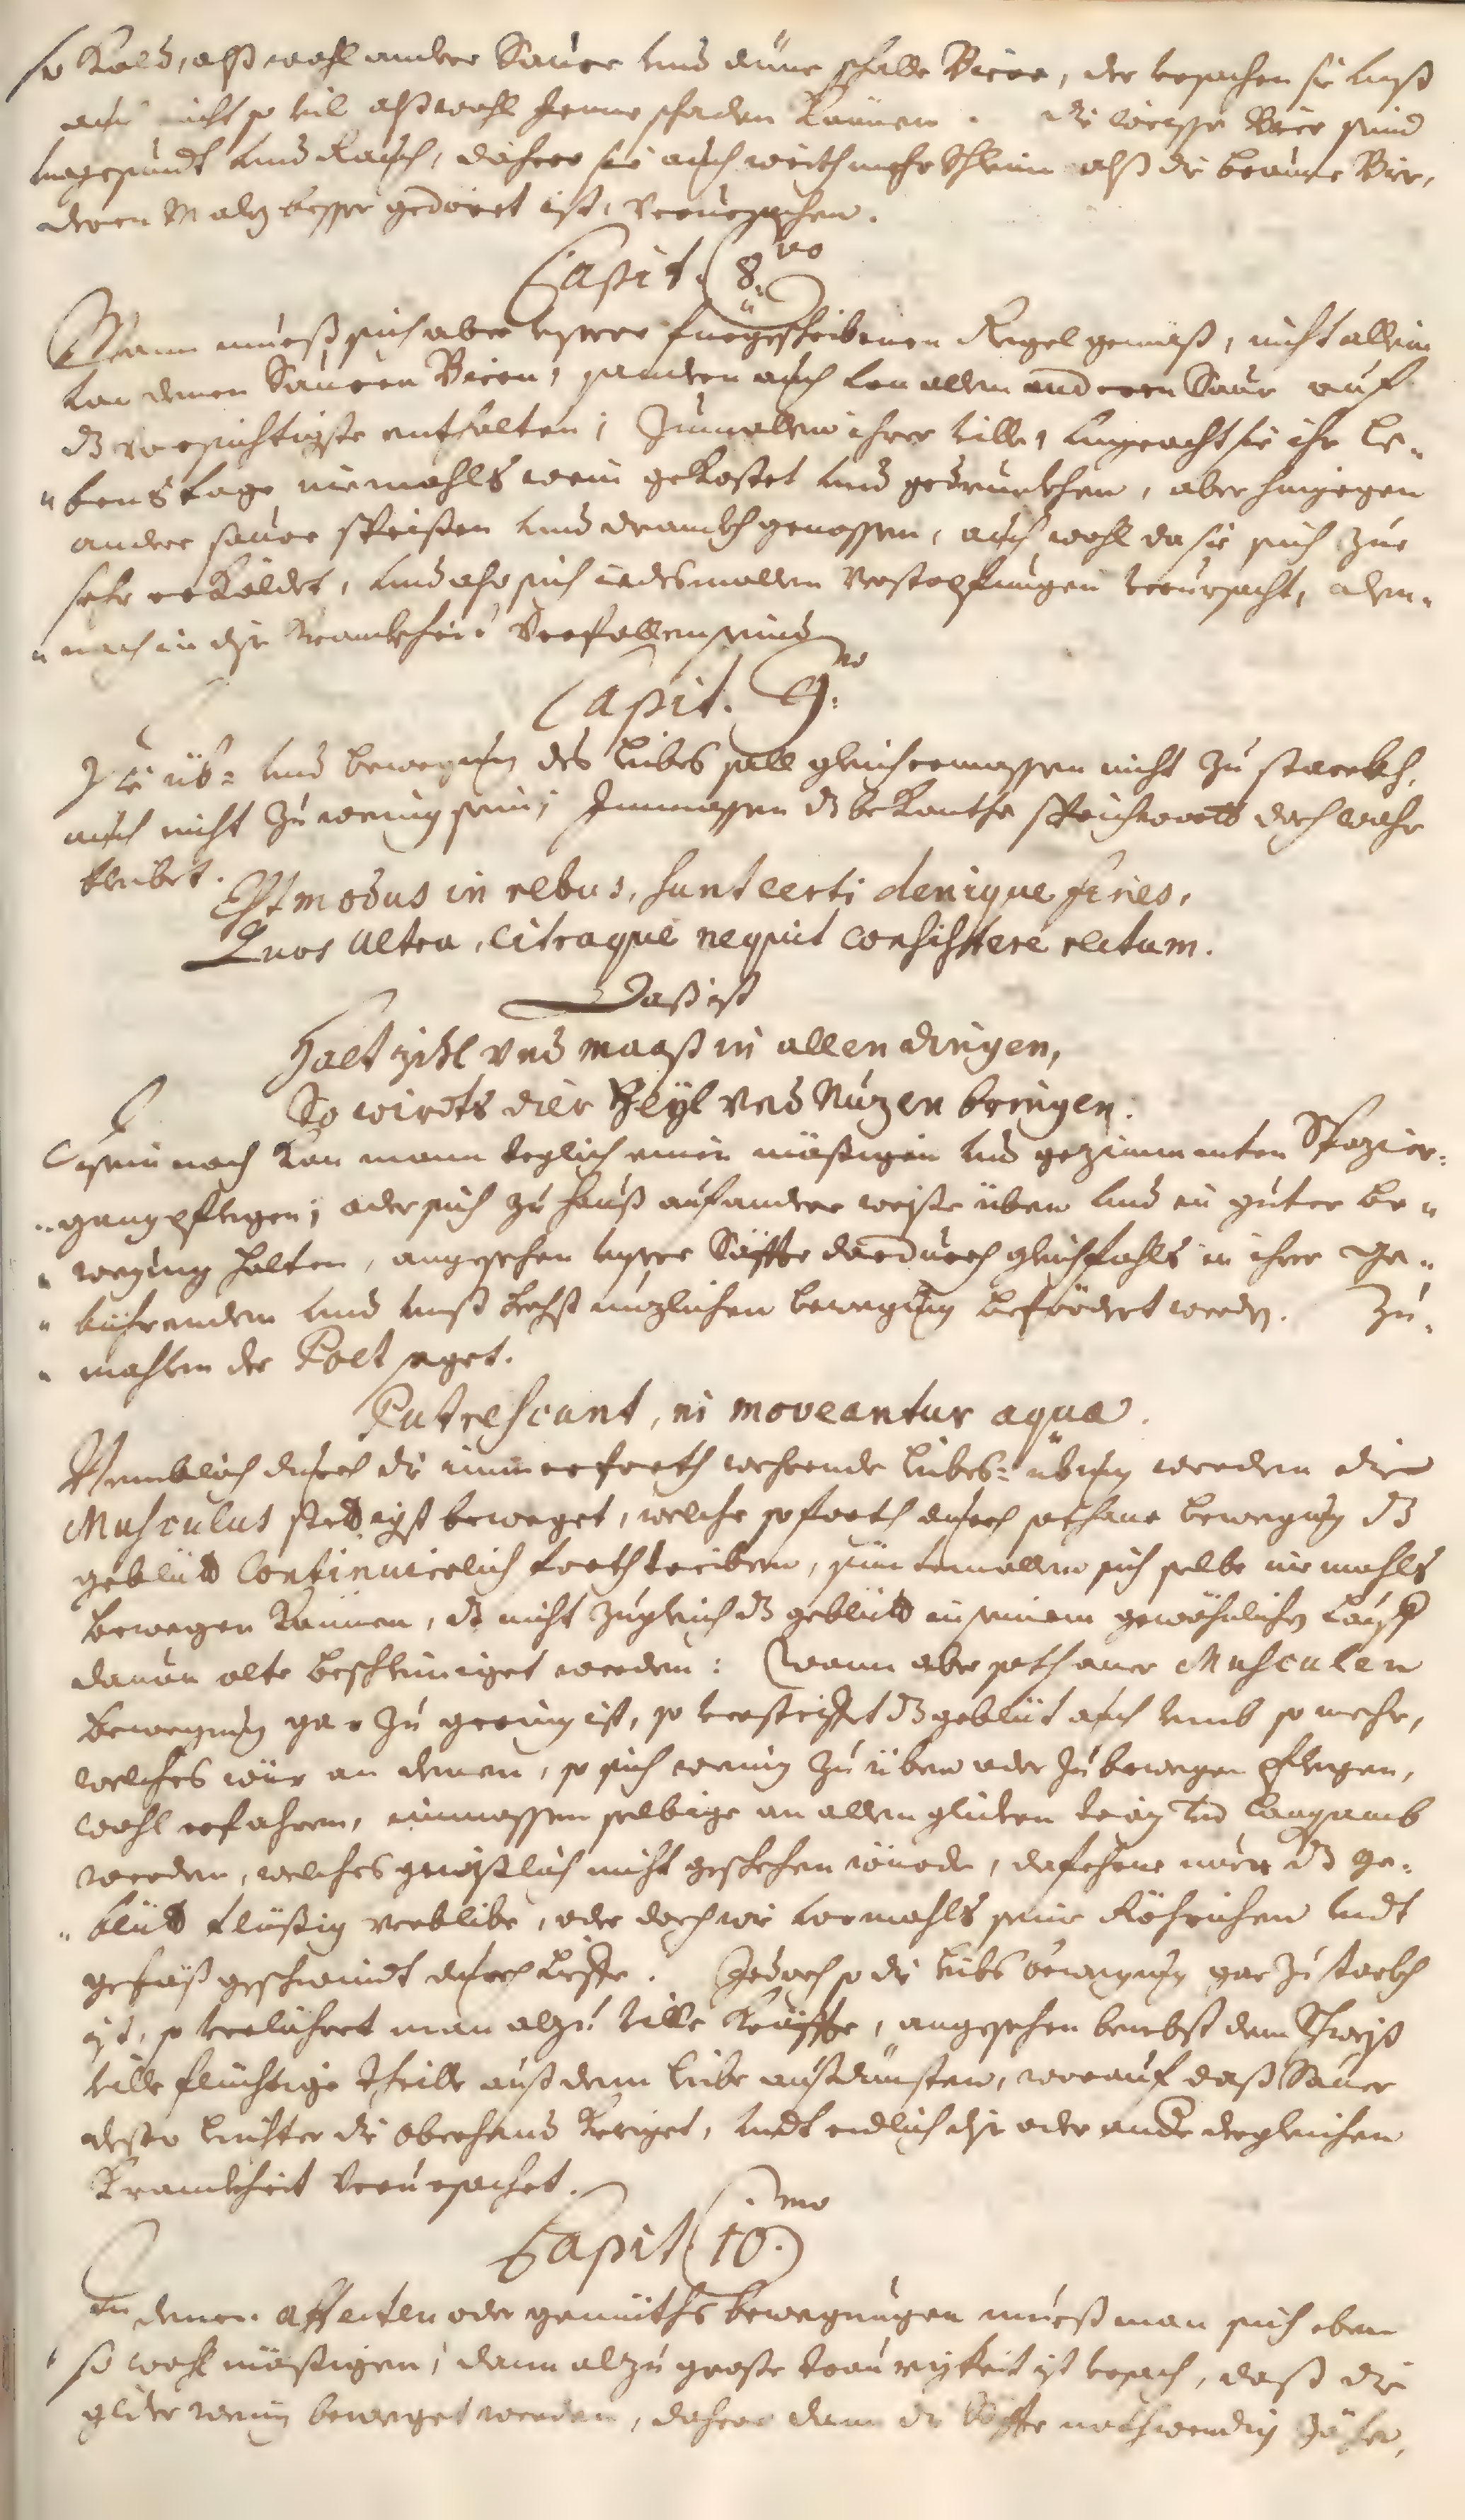 so bald, alß wohl andere Saure und düne schalle Biere, der ursachen sie unß
auch nicht so vil alß wohl Jenne schaden können. die weisse Bier seind
ungesundt und Rauch, dahero sie auch weith mehr Schleim alß die braune Bier,
deren Maltz besser gedöret ist, verursachen.
Capit. 8.vo
Mann mueß sich aber unserer fürgeschribenen Regel gemäß, nicht allein
von denen Sauren Bieren, sondern auch von allem anderen Saur auf
dz vorsichtigste enthalten; Zumallen ihrer ville, ungeacht sie ihr Le-
"benstage niemahls wein gekostet und gedrunkhen, aber hingegen
andere saure speißen und drankh genossen, auch wohl da sie sich zue
sehr erkäldet, und also sich iedesmallen Verstopfungen verursacht, dem-
"nach in dise Krankheit Verfallen seind
Capit. 9.no
Die üb- und bewegung des Leibes soll gleichermassen nicht zu starckh,
auch nicht zu wenig sein; Immassen dz bekanthe sprichwortt doch wahr
bleibet.
Est modus in rebus, sunt certi denique fines,
Quos ultra, citraque nequit consistere rectum.
Daß ist
Halt zihl und maaß in allen dingen,
So wirdts dier Heyl und Nuzen bringen.
Disem nach kan mann teglich einen mäßigen und gezimmenten Spazier-
"gang pflegen; oder sich zu Hauß auf andere weiße üben und in guter be-
"wegung halten, angesehen unsere Säffte dardurch gleichfahls in ihrer ge-
"bührenden und unß höchst nuzlichen bewegung befördert werden. Zu-
"mahlen der Poet saget.
Putrescunt, ni moveantur aquæ.
Nemblich durch die immerforth wehrende Leibs-übung werden die
Musculus stettigst beweget, welche soforth durch sothane bewegung dz
geblütt Continuirlich forth treiben, sintemallen sich selbe niemahls
bewegen können, dz nicht zugleich dz geblütt in seinem gewöhnlichen Lauff
davon solte beschleiniget werden: Wann aber sothaner Musculen
bewegung gar zu gering ist, so verstecket dz geblüt auch umb so mehr,
welches wür an denen, so sich wenig zu üben oder zu bewegen pflegen,
wohl erfahren, immassen selbige an allen glideren träg und langsamb
werden, welches gewißlich nicht geschehen würde, dafehrne nur dz ge-
"blütt flüßig verblibe, oder doch wie vormahls seine Röhrichen undt
gefäß geschwindt durchlieffe. Jedoch so die Leibs bewegung gar zu starkh
ist, so verlühret man alzu ville Kräffte, angesehen benebst dem Schweiß
ville flüchtige theille auß dem Leibe außdünsten, worauf daß Saure
desto leichter die oberhand krieget, undt endlich dise oder ande dergleichen
Krankheit Verursachet.
Capit. 10.mo
In denen affecten oder gemüths bewegungen mueß man sich eben
so wohl mäßigen; dann alzu große traurigkeit ist ursach, daß die
glider wenig beweget werden, dahero dann die Säffte nothwendig zäher,